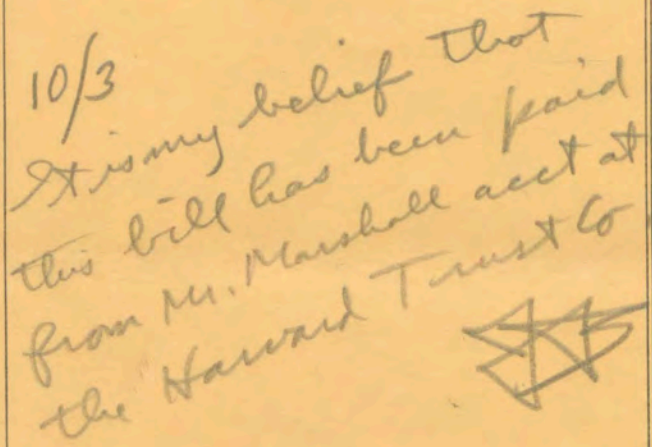 10/3
It is my belief that
this bill has been paid
from Mr. Marshall acct at
the Harvard Trust Co